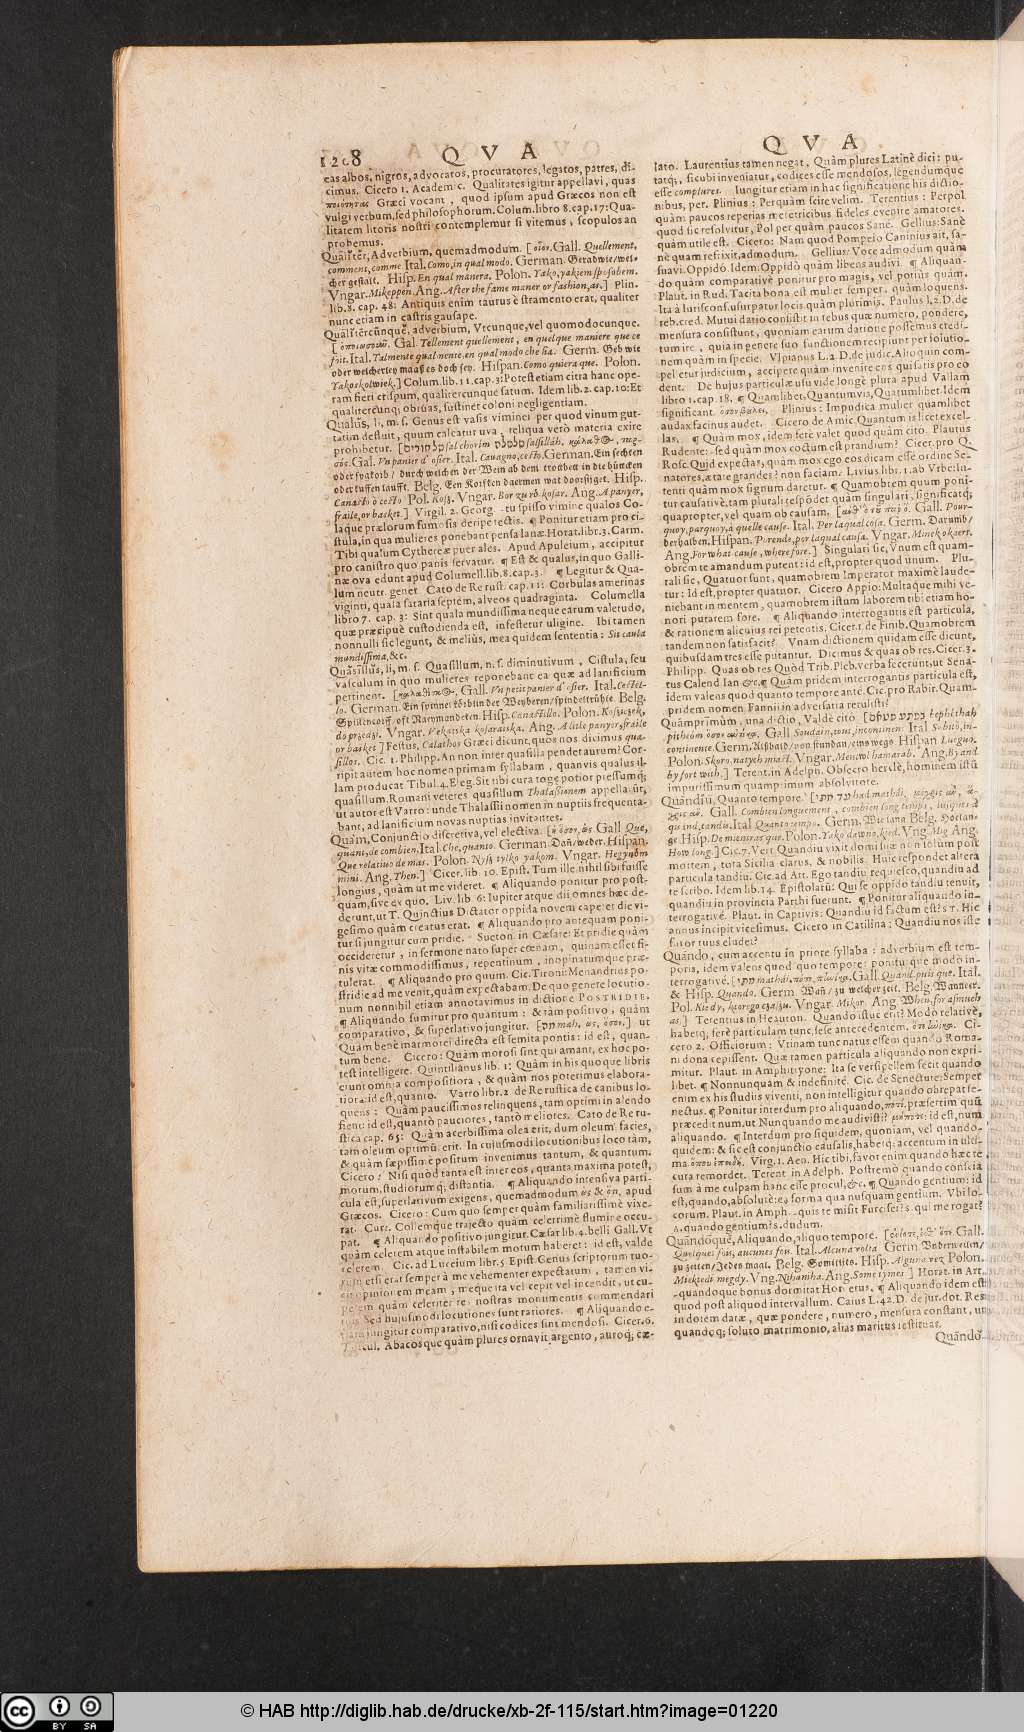 1208 Q V A Q V A
eas albos, nigros, advocatos, procuratores, legatos, patres, di-
cimus. Cicero 1. Academic. Qualitates igitur appellavi, quas
ποιότητας Græci vocant, quod ipsum apud Græcos non est
vulgi verbum, sed philosophorum. Colum. libro 8. cap. 17: Qua-
litatem litoris nostri contemplemur si vitemus, scopulos an
probemus.
Qualĭtĕr, Adverbium, quemadmodum. [οἷον. Gall. Quellement,
comment, comme Ital. Como, in qual modo. German. Geradwie/wel-
cher gestalt. Hisp. En qual manera. Polon. Yako, yakiem sposobem.
Vngar. Mikeppen. Ang. After the same maner or fashion, as.] Plin.
lib. 8. cap. 48: Antiquis enim taurus è stramento erat, qualiter
nunc etiam in castris gausape.
adverbium, Vtcunque, vel quomodocunque.
Gal. Tellement quellement, en quelque maniere que ce
soit. Ital. Talmente qualmente, en qual modo che sia. Germ. Geb wie
oder welcherley maaß es doch sey. Hispan. Como quiera que. Polon.
Yakoskolwiek.] Colum. lib. 11. cap. 3: Potest etiam citra hanc ope-
ram fieri crispum, qualitercunque satum. Idem lib. 2. cap. 10: Et
qualitercunq; obrutas, sustinet coloni negligentiam.
Qualus, li, m. s. Genus est vasis viminei per quod vinum gut-
tatim defluit, quum calcatur uva, reliqua verò materia exire
prohibetur.
Gal. Vn panier d'osier. Ital. Cavagno, cesto. German. Ein sechten
Pol. Kosz. Vngar. Bor zu rö kosar. Ang. A panyer,
fraile, or basket.] Virgil. 2. Georg. -tu spisso vimine qualos Co-
laque prælorum fumosis deripe tectis. ¶ Ponitur etiam pro ci-
stula, in qua mulieres ponebant pensa lanæ. Horat. libr. 3. Carm.
Tibi qualum Cythereæ puer ales. Apud Apuleium, accipitur
pro canistro quo panis servatur. ¶ Est & qualus, in quo Galli-
næ ova edunt apud Columell. lib. 8. cap. 3. ¶ Legitur & Qua-
lum neutr. gener. Cato de Re rust. cap. 11: Corbulas amerinas
viginti, quala sataria septem, alveos quadraginta. Columella
libro 7. cap. 3: Sint quala mundissima neque earum valetudo,
quæ præcipuè custodienda est, infestetur uligine. Ibi tamen
nonnulli sic legunt, & meliùs, mea quidem sententia: Sit caula
mundissima, &c.
Quasillus, li, m. s. Quasillum, n. s. diminutivum, Cistula, seu
vasculum in quo mulieres reponebant ea quæ ad lanificium
pertinent. Gall. Vn petit panier d'osier. Ital. Cestel-
lo. German. Ein spinnet körblin der Weyberen/spindeltrühle. Belg.
Hisp. Canastillo. Polon. Koszuzek,
do przedzi. Vngar. Vekaiska kosaraiska. Ang. A litle panyer, fraile
or basket.] Festus, Calathos Græci dicunt, quos nos dicimus qua-
sillos. Cic. 1. Philipp. An non inter quasilla pendet aurum? Cor-
ripit autem hoc nomen primam syllabam, quanvis qualus il-
lam producat Tibul. 4. Eleg. Sit tibi cura togę potior pressumq;
quasillum. Romani veteres quasillum Thalassionem appellarūt,
ut autor est Varro: unde Thalassi nomen in nuptiis frequenta-
bant, ad lanificium novas nuptias invitantes.
Quàm, Conjunctio discretiva, vel electiva. [ἢ ὅσον, ὡς Gall Que,
quant, de combien, Ital. Che, quanto. German. Dañ/weder. Hispan.
Que relativo de mas. Polon. Nysh tylko yakom. Vngar. Hegyndm
mini. Ang. Then.] Cicer. lib. 10. Epist. Tum ille nihil sibi fuisse
longius, quàm ut me videret. ¶ Aliquando ponitur pro post-
quam, sive ex quo. Liv. lib. 6: Iupiter atque dii omnes hæc de-
derunt, ut T. Quinctius Dictator oppida novem caperet die vi-
gesimo quàm creatus erat. ¶ Aliquando pro antequam poni-
tur si jungitur cum pridie. Sueton. in Cæsare: Et pridie quàm
occideretur, in sermone nato super cœnam, quinam esset fi-
nis vitæ commodissimus, repentinum, inopinatumque præ-
tulerat. ¶ Aliquando pro quum. Cic. Tironi: Menandrius po-
stridie ad me venit, quàm expectabam. De quo genere locutio-
num nonnihil etiam annotavimus in dictione POSTRIDIE.
¶ Aliquando sumitur pro quantum: & tàm positivo, quàm
comparativo, & superlativo jungitur. ut
Quàm benè marmorei directa est semita pontis: id est, quan-
tum bene. Cicero: Quàm morosi sint qui amant, ex hoc po-
test intelligere. Quintilianus lib. 1: Quàm in his quoque libris
erunt omnia compositiora, & quàm nos poterimus elabora-
tiora: id est, quanto. Varro libr. 2. de Re rustica de canibus lo-
quens: Quàm paucissimos relinquens, tam optimi in alendo
fient: id est, quantò pauciores, tantò meliores. Cato de Re ru-
stica cap. 65: Quàm acerbissima olea erit, dum oleum facies,
tam oleum optimū erit. In cujusmodi locutionibus loco tàm,
& quàm sæpissimè positum invenimus tantum, & quantum.
Cicero: Nisi quòd tanta est inter eos, quanta maxima potest,
morum, studiorumq; distantia. ¶ Aliquando intensiva parti-
cula est, superlativum exigens, quemadmodum ὡς & ὅτι, apud
Græcos. Cicero: Cum quo semper quàm familiarissimè vixe-
rat. Curt. Collemque trajecto quàm celerrimè flumine occu-
pat. ¶ Aliquando positivo jungitur. Cæsar lib. 4. belli Gall. Vt
quàm celerem atque instabilem motum haberet: id est, valde
celerem. Cic. ad Luceium libr. 5 Epist Genus scriptorum tuo-
rum etsi erat semper à me vehementer expectatum, tamen vi-
cit opinionem meam, meque ita vel cepit vel incendit, ut cu-
perem quàm celeriter res nostras monumentis commendari
tuis. Sed hujusmodi locutiones sunt rariores. ¶ Aliquando e-
tiam jungitur comparativo, nisi codices sint mendosi. Cicer. 6.
Tuscul. Abacos que quàm plures ornavit argento, auroq;, cæ-
lato. Laurentius tamen negat, Quàm plures Latinè dici: pu-
tatq;, sicubi inveniatur, codices esse mendosos, legendumque
esse complures. Iungitur etiam in hac significatione his dictio-
nibus, per. Plinius: Perquàm scire velim. Terentius: Perpol
quàm paucos reperias meretricibus fideles evenire amatores.
quod sic resolvitur, Pol per quàm paucos Sanè. Gellius: Sanè
quàm utile est. Cicero: Nam quod Pompeio Caninius ait, sa-
nè quàm refrixit, admodum. Gellius: Voce admodum quàm
suavi. Oppidò. Idem: Oppidò quàm libens audivi. ¶ Aliquan-
do quàm comparativè ponitur pro magis, vel potiùs quàm.
Plaut. in Rud. Tacita bona est mulier semper, quàm loquens.
Ita à Iurisconf. usurpatur locis quàm plurimis. Paulus l. 2. D. de
reb. cred. Mutui datio consistit in rebus quæ numero, pondere,
mensura consistunt, quoniam earum datione possemus credi-
tum ire, quia in genere suo functionem recipiunt per solutio-
nem quàm in specie. Vlpianus L. 2. D. de judic. Alioquin com-
pelletur judicium, accipere quàm invenire eos qui satis pro eo
dent. De hujus particulæ usu vide longè plura apud Vallam
libro 1. cap. 18. ¶ Quamlibet, Quantumvis, Quatumlibet. Idem
significant. Plinius: Impudica mulier quamlibet
audax facinus audet. Cicero de Amic. Quantum is licet excel-
las. ¶ Quàm mox, idem ferè valet quod quàm citò. Plautus
Rudente: -sed quàm mox coctum est prandium? Cicer. pro Q.
Rosc. Quid expectas, quàm mox ego eos dicam esse ordine Se-
natores, ætate grandes? non faciam? Livius libr. 1. ab Vrbe: In-
tenti quàm mox signum daretur. ¶ Quamobrem quum poni-
tur causativè, tam plurali respōdet quàm singulari, significatq;
quapropter, vel quam ob causam. Gall. Pour-
quoy, parquoy, à quelle cause. Ital. Per la qual cosa. Germ. Darumb/
derhalben. Hispan. Porende, por la qual causa. Vngar. Minek okaert.
Ang. For what cause, wherefore.] Singulari sic, Vnum est quam-
obrem te amandum putent: id est, propter quod unum. Plu-
rali sic, Quatuor sunt, quamobrem Imperator maximè laude-
tur: Id est, propter quatuor. Cicero Appio: Multaque mihi ve-
niebant in mentem, quamobrem istum laborem tibi etiam ho-
nori putarem fore. ¶ Aliquando interrogantis est particula,
& rationem alicujus rei petentis. Cicer. 1. de Finib. Quamobrem
tandem non satisfacit? Vnam dictionem quidam esse dicunt,
quibusdam tres esse putantur. Dicimus & quas ob res. Cicer. 3.
Philipp. Quas ob res Quòd Trib. Pleb. verba fecerunt, ut Sena-
tus Calend Ian &c. ¶ Quàm pridem interrogantis particula est,
idem valens quod quanto tempore antè. Cic. pro Rabir. Quam-
pridem nomen Fannii in adversaria retulisti?
Quàmprīmùm, una dictio, Valdè citò.
Gall Soudain, tous, incontinent Ital Subito, in-
continente. Germ. Alßbald/von stundan/eins wegs. Hispan Luego.
Polon. Skoro, natychmiast. Vngar. Menewl hamarab. Ang. By and
by fort with.] Terent. in Adelph. Obsecro herclè, hominem istū
impurissimum quamprimum absolvitote.
Quandiu, Quanto tempore.
Gall. Combien longuement, combien long temps, jusques à
quand, tandis. Ital Quanto tempo. Germ. Wie lang Belg. Hoelan-
ge Hisp. De mientras que. Polon. Yako dawno, kied. Vng Mig Ang.
How long.] Cic. 7. Verr. Quandiu vixit domi suæ non solum post
mortem, tota Sicilia clarus, & nobilis. Huic respondet altera
particula tandiu. Cic. ad Att. Ego tandiu requiesco, quandiu ad
te scribo. Idem lib. 14. Epistolarū: Qui se oppidò tandiu tenuit,
quandiu in provincia Parthi fuerunt. ¶ Ponitur aliquando in-
terrogativè. Plaut. in Captivis: Quandiu id factum est? s T. Hic
annus incipit vicesimus. Cicero in Catilina: Quandiu nos iste
furor tuus eludet?
Quando, cum accentu in priore syllaba: adverbium est tem-
poris, idem valens quod quo tempore: poniturque modò in-
terrogativè. Gall. Quand, puis que. Ital.
& Hisp. Quando. Germ Wañ/zu welcher zeit. Belg. Wanneer.
Pol. Kiedy, ktorego czaszu. Vngar Mikor Ang When, for asmuch
as] Terentius in Heauton. Quando istuc erit? Modò relativè,
habetq; ferè particulam tunc, sese antecedentem. Ci-
cero 2. Officiorum: Vtinam tunc natus essem quando Roma-
ni dona cepissent. Quæ tamen particula aliquando non expri-
mitur. Plaut. in Amphitryone: Ita se versipellem fecit quando
libet. ¶ Nonnunquàm & indefinitè. Cic. de Senectute: Semper
enim ex his studiis viventi, non intelligitur quando obrepat se-
nectus. ¶ Ponitur interdum pro aliquando, ποτὲ, præsertim quū
præcedit num, ut Nunquando me audivisti? id est, num
aliquando. ¶ Interdum pro siquidem, quoniam, vel quando-
quidem: & sic est conjunctio causalis, habetq; accentum in ulti-
ma Virg. 1. Aen. Hic tibi, favor enim quando hæc te
cura remordet. Terent. in Adelph. Postremò quando conscia
sum à me culpam hanc esse procul, &c. ¶ Quando gentium: id
est, quando, absolutè: eâ forma qua nusquam gentium. Vbi lo-
corum. Plaut. in Amph. -quis te misit Furcifer? s. qui me rogat?
A. quando gentium? s. dudum.
Quandoque, Aliquando, aliquo tempore. Gall.
Quelques fois, aucunes fois. Ital. Alcuna volta Germ. Underweilen/
zu zeiten/Jeden maal. Belg. Somtijts. Hisp. Alguna vez Polon.
Miektedi megdy. Vng. Nihamha. Ang. Some tymes.] Horat. in Art.
-quandoque bonus dormitat Homerus. ¶ Aliquando idem est
quod post aliquod intervallum. Caius L. 42. D. de jur. dot. Res
in dotem datæ, quæ pondere, numero, mensura constant, ut
quandoq; soluto matrimonio, alias maritus restituat.
Quando-
© HAB http://diglib.hab.de/drucke/xb-2f-115/start.htm?image=01220
cc BY SA